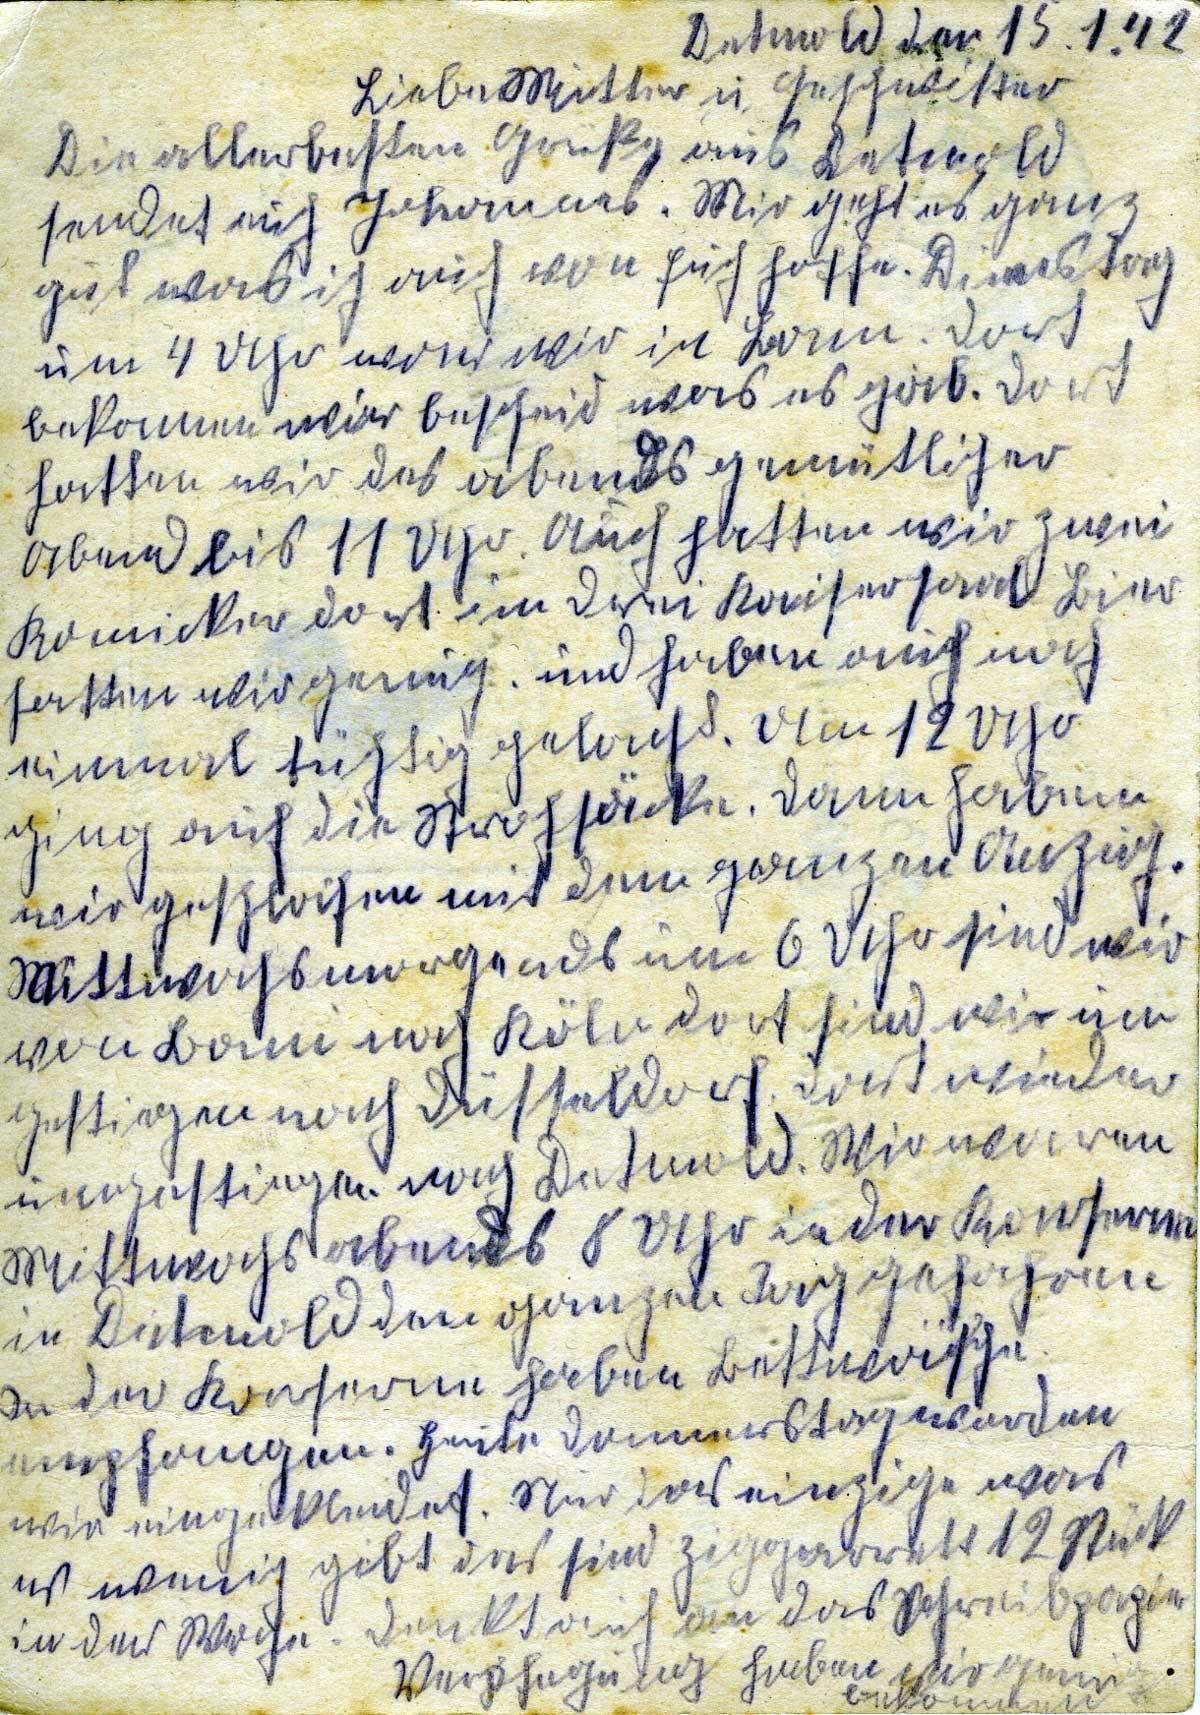 Detmold den 15.1.42
Liebe Mutter u Geschwister
Die allerbesten Grüße aus Detmold
sendet euch Johannes. Mir geht es ganz
gut was ich auch von Euch hoffe. Dienstag
um 4 Uhr waren wir in Bonn. Dort
bekommen wir bescheid was es gab. Dort
hatten wir des abends gemütlicher
Abend bis 11 Uhr. Auch hatten wir zwei
Komicker dort im drei Kaisersaal Bier
hatten wir genug. und haben auch noch
einmal tüchtig gelacht. Um 12 Uhr
ging auf die Strohsäcke. Dann haben
wir geschlafen mit dem ganzen Anzug.
Mittwochsmorgends um 6 Uhr sind wir
von Bonn nach Köln dort sind wir um
gestiegen nach Düsseldorf. Dort wieder
umgestiegen nach Detmold. Wir waren
Mittwochs abends 8 Uhr in der Kaserne
in Detmold den ganzen Tag gefahren
In der Kaserne haben Bettwäsche
empfangen. Heute Donnerstag werden
wir eingekleidet. Nur das einzige was
es wenig gibt das sind ziggarrett 12 Stück
in der Woche. Denkt auch an das Schreibpapier
Verpflegung haben wir genug
bekommen